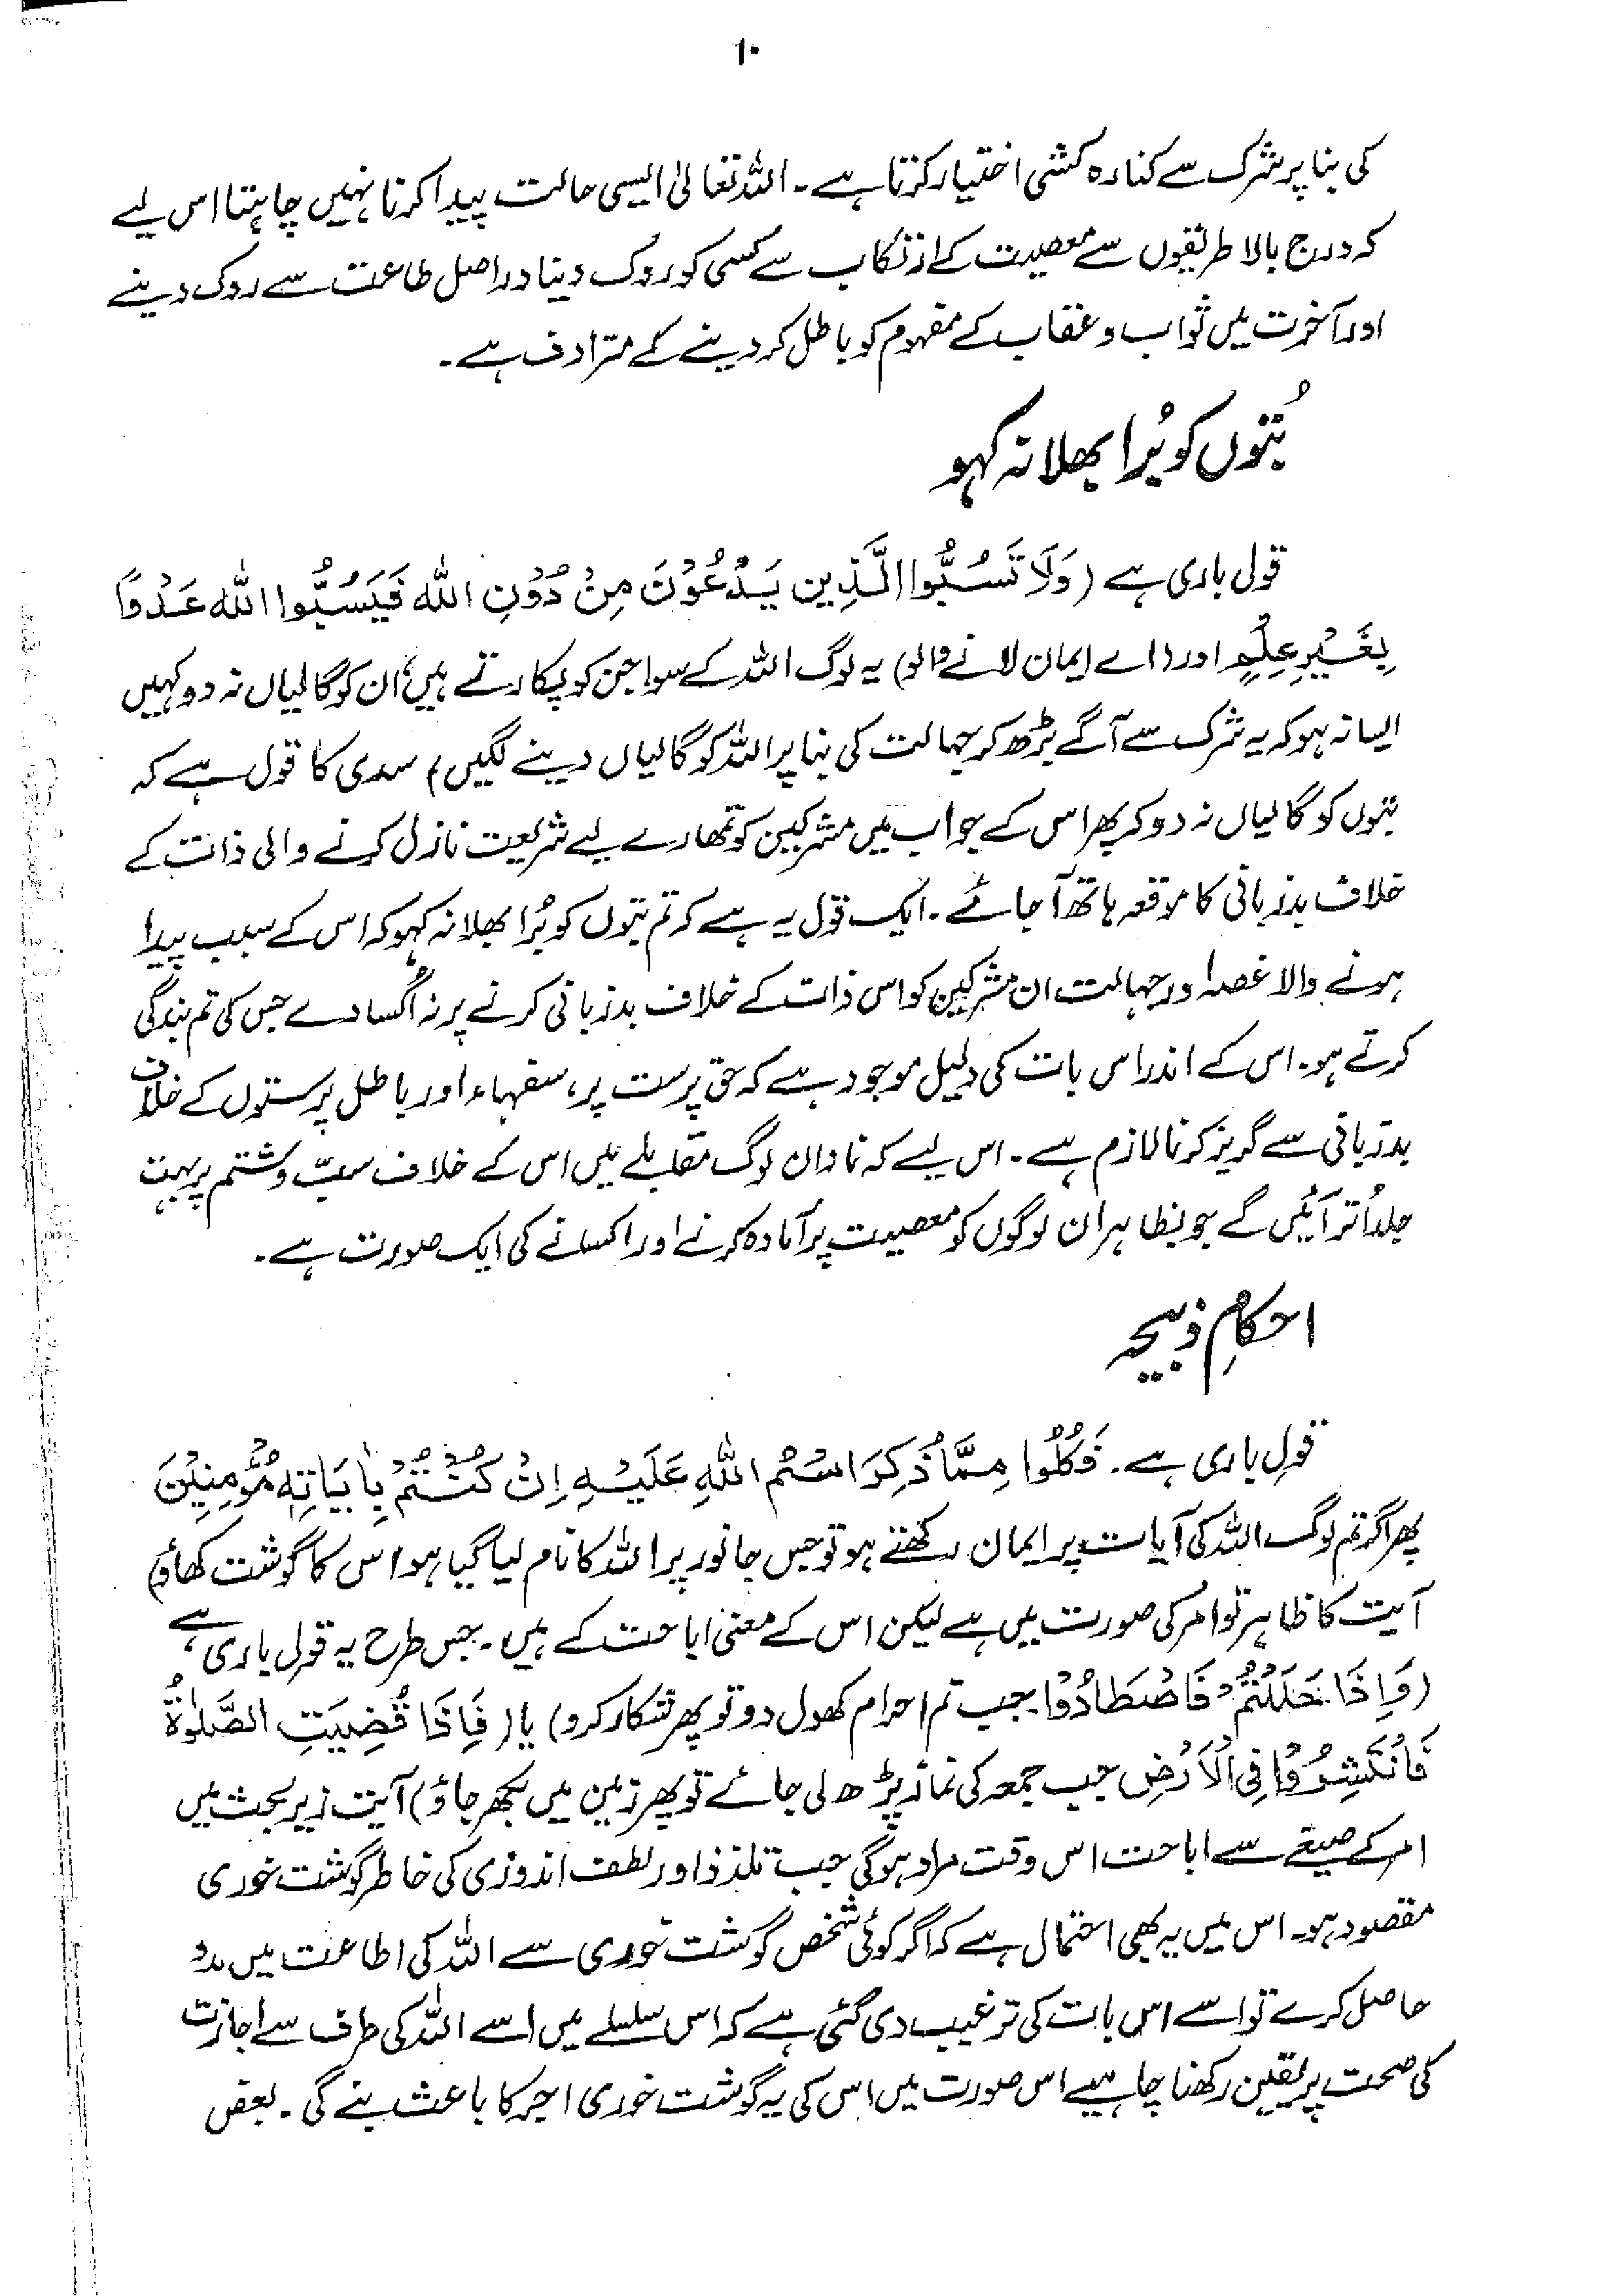 ۱۰
کی بنا پر شرک سے کنارہ کشی اختیار کرتا ہے۔ اللہ تعالیٰ ایسی حالت پیدا کرنا نہیں چاہتا اس لیے
کہ درج بالا طریقوں سے معصیت کے ارتکاب سے کسی کو روک دینا دراصل طاعت سے روک دینے
اور آخرت میں ثواب و عقاب کے مفہوم کو باطل کر دینے کے مترادف ہے۔
بُتوں کو بُرا بھلا نہ کہو
قول باری ہے (وَلَا تَسُبُّوا الَّذِين يَدْعُوْنَ مِنْ دُوْنِ الله فَيَسُبُّوا الله عَدْوًا
بِغَيْرِ عِلْمٍ اور (اے ایمان لانے والو) یہ لوگ اللہ کے سوا جن کو پکارتے ہیں، ان کو گالیاں نہ دو کہیں
ایسا نہ ہو کہ یہ شرک سے آگے بڑھ کر جہالت کی بنا پر اللہ کو گالیاں دینے لگیں) سدی کا قول ہے کہ
بتوں کو گالیاں نہ دو کہ پھر اس کے جواب میں مشرکین کو تمھارے لیے شریعت نازل کرنے والی ذات کے
خلاف بدزبانی کا موقعہ ہاتھ آ جائے۔ ایک قول یہ ہے کہ تم بتوں کو بُرا بھلا نہ کہو کہ اس کے سبب پیدا
ہونے والا غصہ اور جہالت ان مشرکین کو اس ذات کے خلاف بدزبانی کرنے پر نہ اُکسا دے جس کی تم بندگی
کرتے ہو۔ اس کے اندر اس بات کی دلیل موجود ہے کہ حق پرست پر، سفہاء اور باطل پرستوں کے خلاف
بدزبانی سے گریز کرنا لازم ہے۔ اس لیے کہ نادان لوگ مقابلے میں اس کے خلاف سبّ و شتم پر بہت
جلد اُتر آئیں گے جو بظاہر ان لوگوں کو معصیت پر آمادہ کرنے اور اکسانے کی ایک صورت ہے۔
احکامِ ذبیحہ
قولِ باری ہے۔ فَكُلُوْا مِمَّا ذُكِرَ اسْمُ اللّٰهِ عَلَيْهِ اِنْ كُنْتُمْ بِاٰيَاتِهٖ مُؤْمِنِيْنَ
پھر اگر تم لوگ اللہ کی آیات پر ایمان رکھتے ہو تو جس جانور پر اللہ کا نام لیا گیا ہو اس کا گوشت کھاؤ)
آیت کا ظاہر تو امر کی صورت میں ہے لیکن اس کے معنی اباحت کے ہیں۔ جس طرح یہ قول باری ہے،
(وَاِذَا حَلَلْتُمْ فَاصْطَادُوْا جب تم احرام کھول دو تو پھر شکار کرو) یا (فَاِذَا قُضِيَتِ الصَّلوٰةُ
فَانْتَشِرُوْا فِی الْاَرْضِ جب جمعہ کی نماز پڑھ لی جائے تو پھر زمین میں بکھر جاؤ) آیت زیر بحث میں
امر کے صیغے سے اباحت اس وقت مراد ہوگی جب تلذذ اور لطف اندوزی کی خاطر گوشت خوری
مقصود ہو۔ اس میں یہ بھی احتمال ہے کہ اگر کوئی شخص گوشت خوری سے اللہ کی اطاعت میں مدد
حاصل کرے تو اسے اس بات کی ترغیب دی گئی ہے کہ اس سلسلے میں اسے اللہ کی طرف سے اجازت
کی صحت پر یقین رکھنا چاہیے اس صورت میں اس کی یہ گوشت خوری اجر کا باعث بنے گی۔ بعض